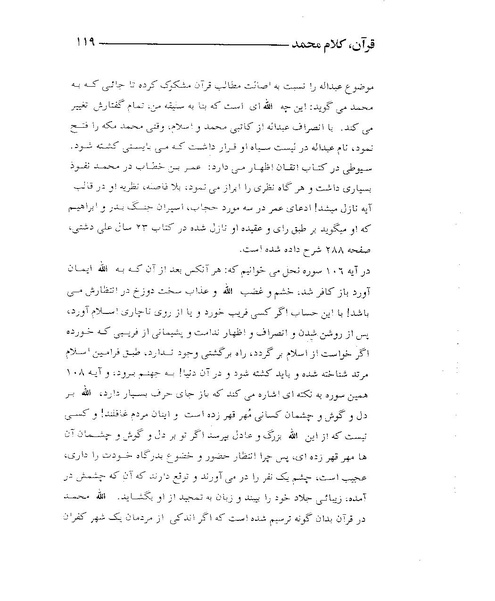 قرآن، کلام محمد ۱۱۹
موضوع عبداله را نسبت به اصالت مطالب قرآن مشکوک کرده تا جائی که به
محمد می گوید: این چه الله ای است که بنا به سلیقه من، تمام گفتارش تغییر
می کند. با انصراف عبداله از کاتبی محمد و اسلام، وقتی محمد مکه را فتح
نمود، نام عبداله در لیست سیاه او قرار داشت که می بایستی کشته شود.
سیوطی در کتاب اتقان اظهار می دارد: عمر بن خطاب در محمد نفوذ
بسیاری داشت و هر گاه نظری را ابراز می نمود، بلا فاصله، نظریه او در قالب
آیه نازل میشد! ادعای عمر در سه مورد حجاب، اسیران جنگ بدر و ابراهیم
که او میگوید بر طبق رای و عقیده او نازل شده در کتاب ۲۳ سال علی دشتی،
صفحه ۲۸۸ شرح داده شده است.
در آیه ۱۰۶ سوره نحل می خوانیم که: هر آنکس بعد از آن که به الله ایمان
آورد باز کافر شد، خشم و غضب الله و عذاب سخت دوزخ در انتظارش می
باشد! با این حساب اگر کسی فریب خورد و یا از روی ناچاری اسلام آورد،
پس از روشن شدن و انصراف و اظهار ندامت و پشیمانی از فریبی که خورده
اگر خواست از اسلام بر گردد، راه برگشتی وجود ندارد، طبق فرامین اسلام
مرتد شناخته شده و باید کشته شود و در آن دنیا! به جهنم برود، و آیه ۱۰۸
همین سوره به نکته ای اشاره می کند که باز جای حرف بسیار دارد، الله بر
دل و گوش و چشمان کسانی مُهر قهر زده است و اینان مردم غافلند! و کسی
نیست که از این الله بزرگ و عادل بپرسد اگر تو بر دل و گوش و چشمان آن
ها مهر قهر زده ای، پس چرا انتظار حضور و خضوع بدرگاه خودت را داری،
عجیب است، چشم یک نفر را در می آورند و توقع دارند که آن که چشمش در
آمده، زیبائی جلاد خود را ببیند و زبان به تمجید از او بگشاید. الله محمد
در قرآن بدان گونه ترسیم شده است که اگر اندکی از مردمان یک شهر کفران